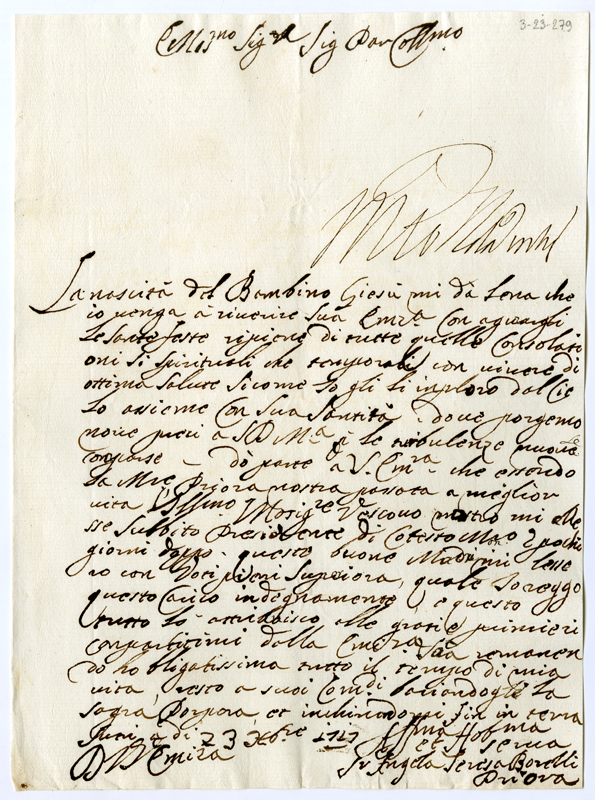 3-23-279
Em̃o Sig.re Sig Pon Coll.mo
La nascità del Bambino Giesù mi dà Lena che
io venga à riverire Sua Em.za Con agurargli
Le Sante feste ripiene di tutte quelle Consolati
oni Si spirituali che temporali con vivere di
ottima salute Si come Io gli li imploro dal Cie
Lo assieme Con Sua Santità dove porgemo
nove preci a S.D.M.a Le turbulenze nuove
Comparse - dò parte à V. Em.za che essendo
La M.re Priora nostra passata a meglior
vita Monsig.re Vescovo nostro mi elle
sse Subbito Presidente di Cotesto Mon.o pochi
giorni doppo queste buone Madri mi elesse
ro con Voci piene Superiora, quale Io reggo
questo carico indegnamente, e questo
tutto lo attribuisco alle gratie
compartitimi dalla Em.za Sua romanen
do ne obligatissima tutto il tempo di mia
vita, resto a suoi Com.di baciandogli La
Sagra Porpora, et inchinandomi fin in terra
di 23 Xbre 1717
D V Em.za
serva
Sr Angela Teresa Borelli
Priora